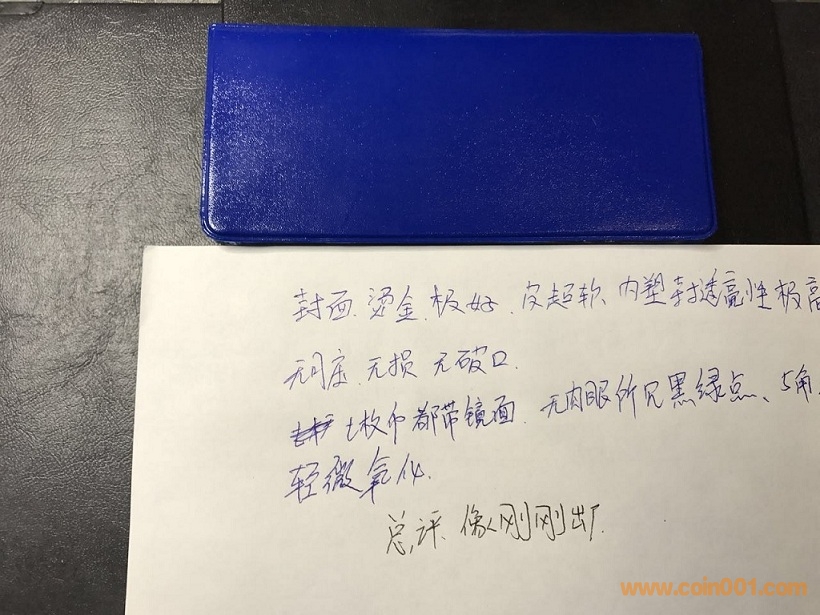 封面.烫金.极好.皮超软、内塑封透亮性极高
无损 无破口.
七枚币都带镜面. 无肉眼所见黑绿点、5角.
轻微氧化.
总评.像刚刚出厂.
www.coin001.com